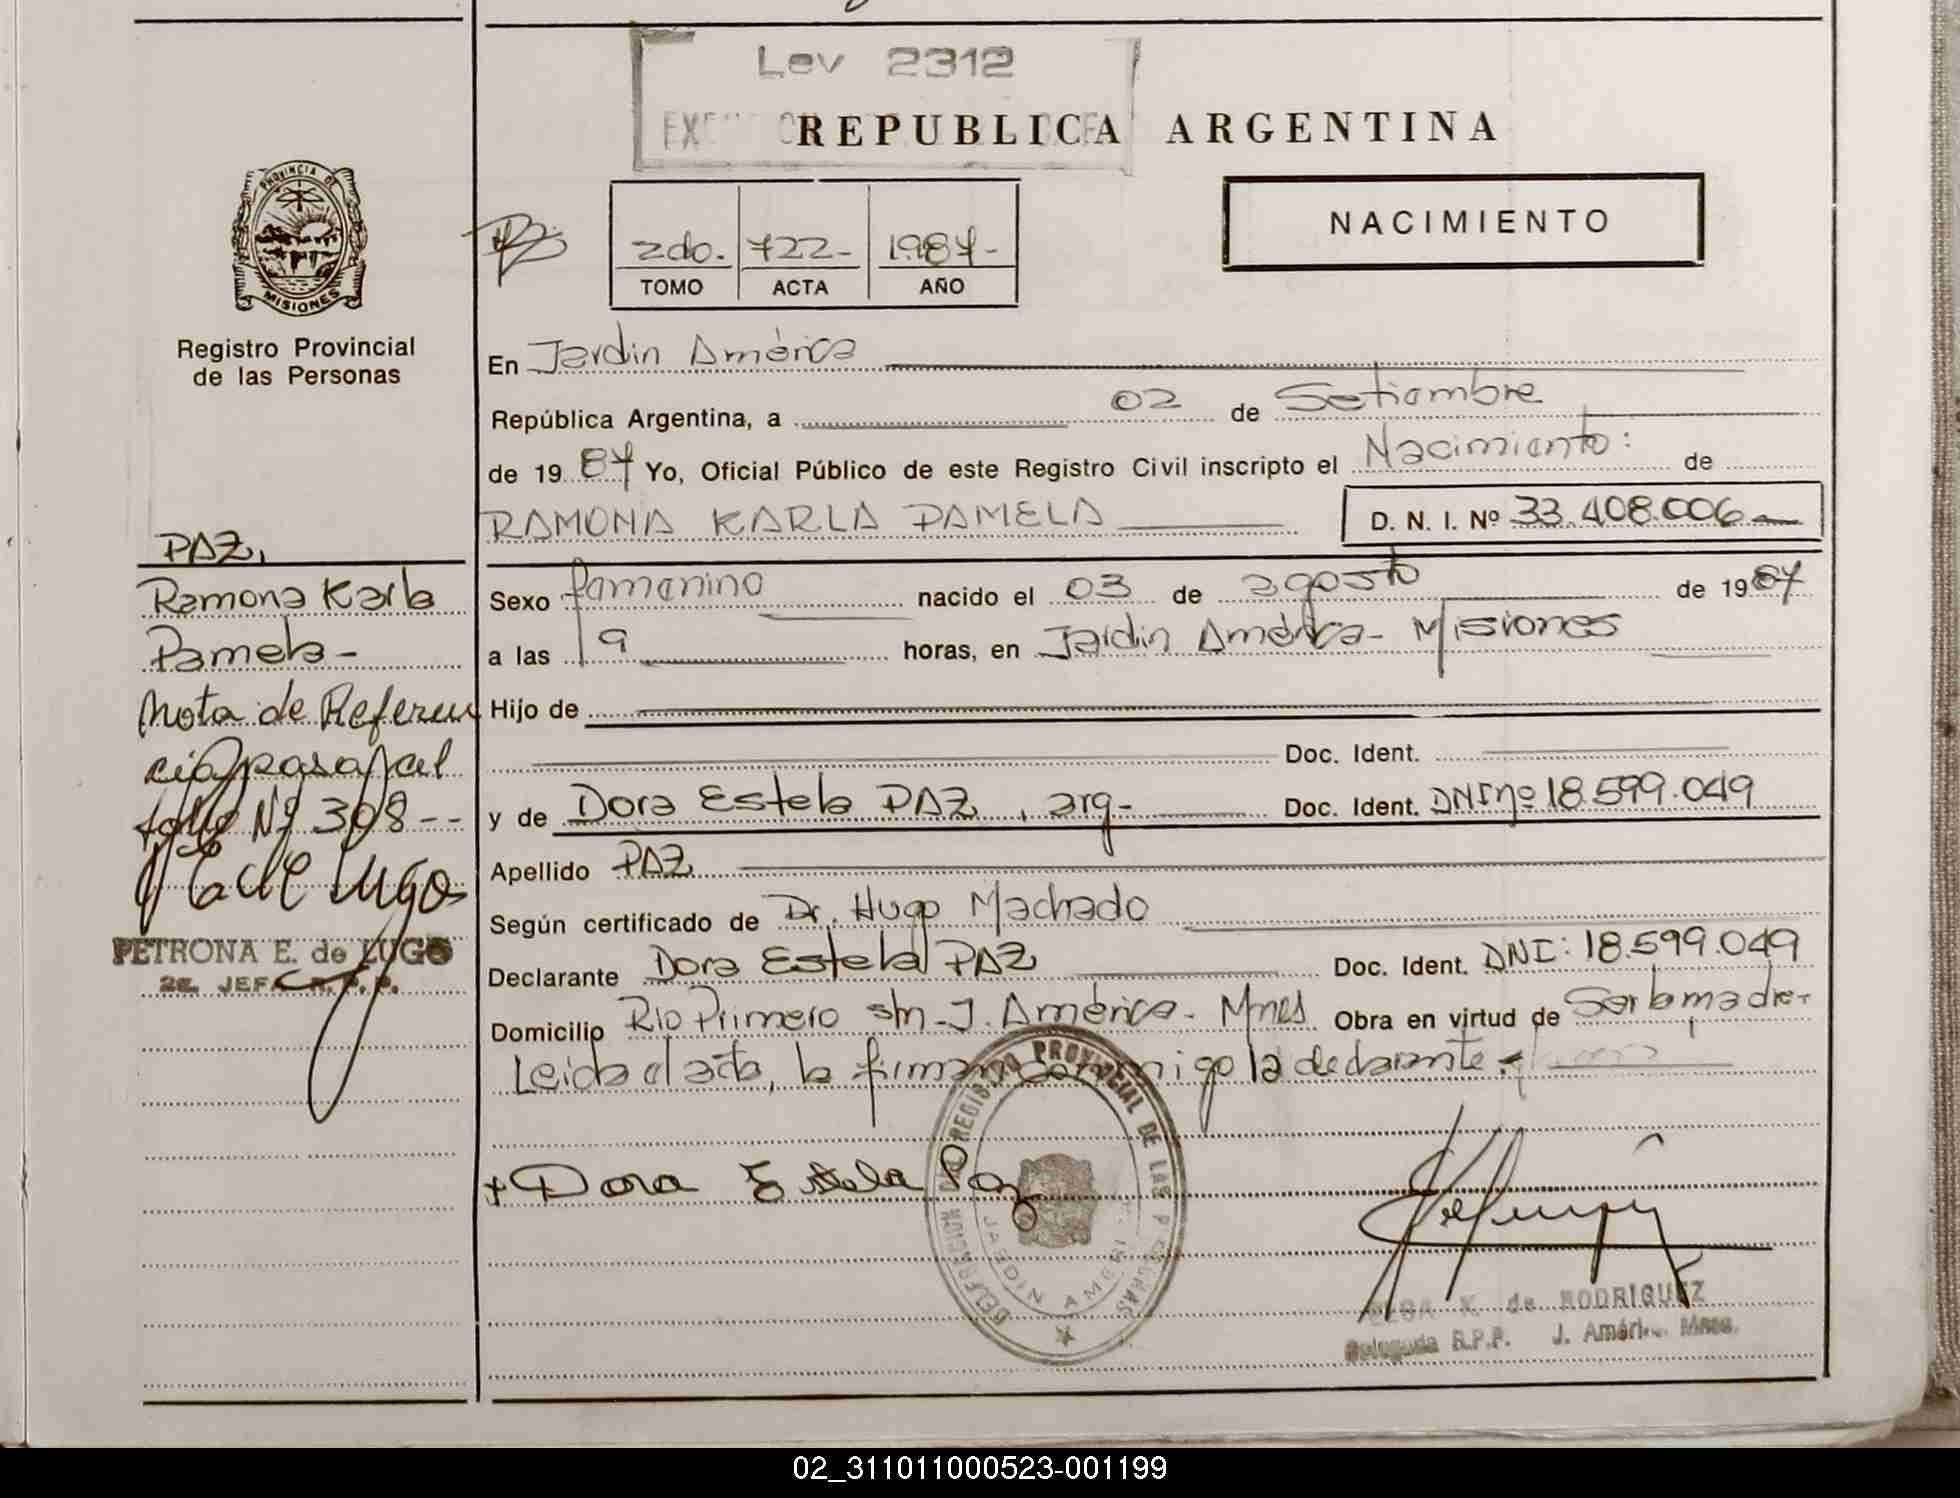 Ley 2312
REPUBLICA ARGENTINA
PROVINCIA DE
MISIONES
Registro Provincial
de las Personas
2do. 722- 1987-
TOMO ACTA AÑO
NACIMIENTO
En Jardin América
República Argentina, a 02 de Setiembre
de 1987 Yo, Oficial Público de este Registro Civil inscripto el Nacimiento: de
RAMONA KARLA PAMELA D. N. I. Nº 33.408.006
Sexo femenino nacido el 03 de agosto de 1987
a las 19 horas, en Jardin América - Misiones
Hijo de
Doc. Ident.
y de Dora Estela PAZ, arg- Doc. Ident. DNI nº 18.599.049
Apellido PAZ
Según certificado de Dr. Hugo Machado
Declarante Dora Estela PAZ Doc. Ident. DNI: 18.599.049
Domicilio Rio Primero s/n - J. América - Mnes Obra en virtud de Ser la madre-
Leida el acta, la firman conmigo la declarante.
+ Dora Estela Paz
PAZ,
Ramona Karla
Pamela-
Nota de Referen
cia pasa al
folio Nº 308--
PETRONA E. de LUGO
2da. JEFA R. P. P.
REGISTRO PROVINCIAL DE LAS PERSONAS
JARDIN AMERICA
ELSA K. de RODRIGUEZ
Delegada R.P.P. J. América Mnes.
02_311011000523-001199